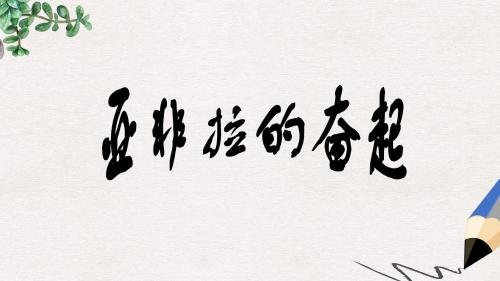 亚非拉的奋起